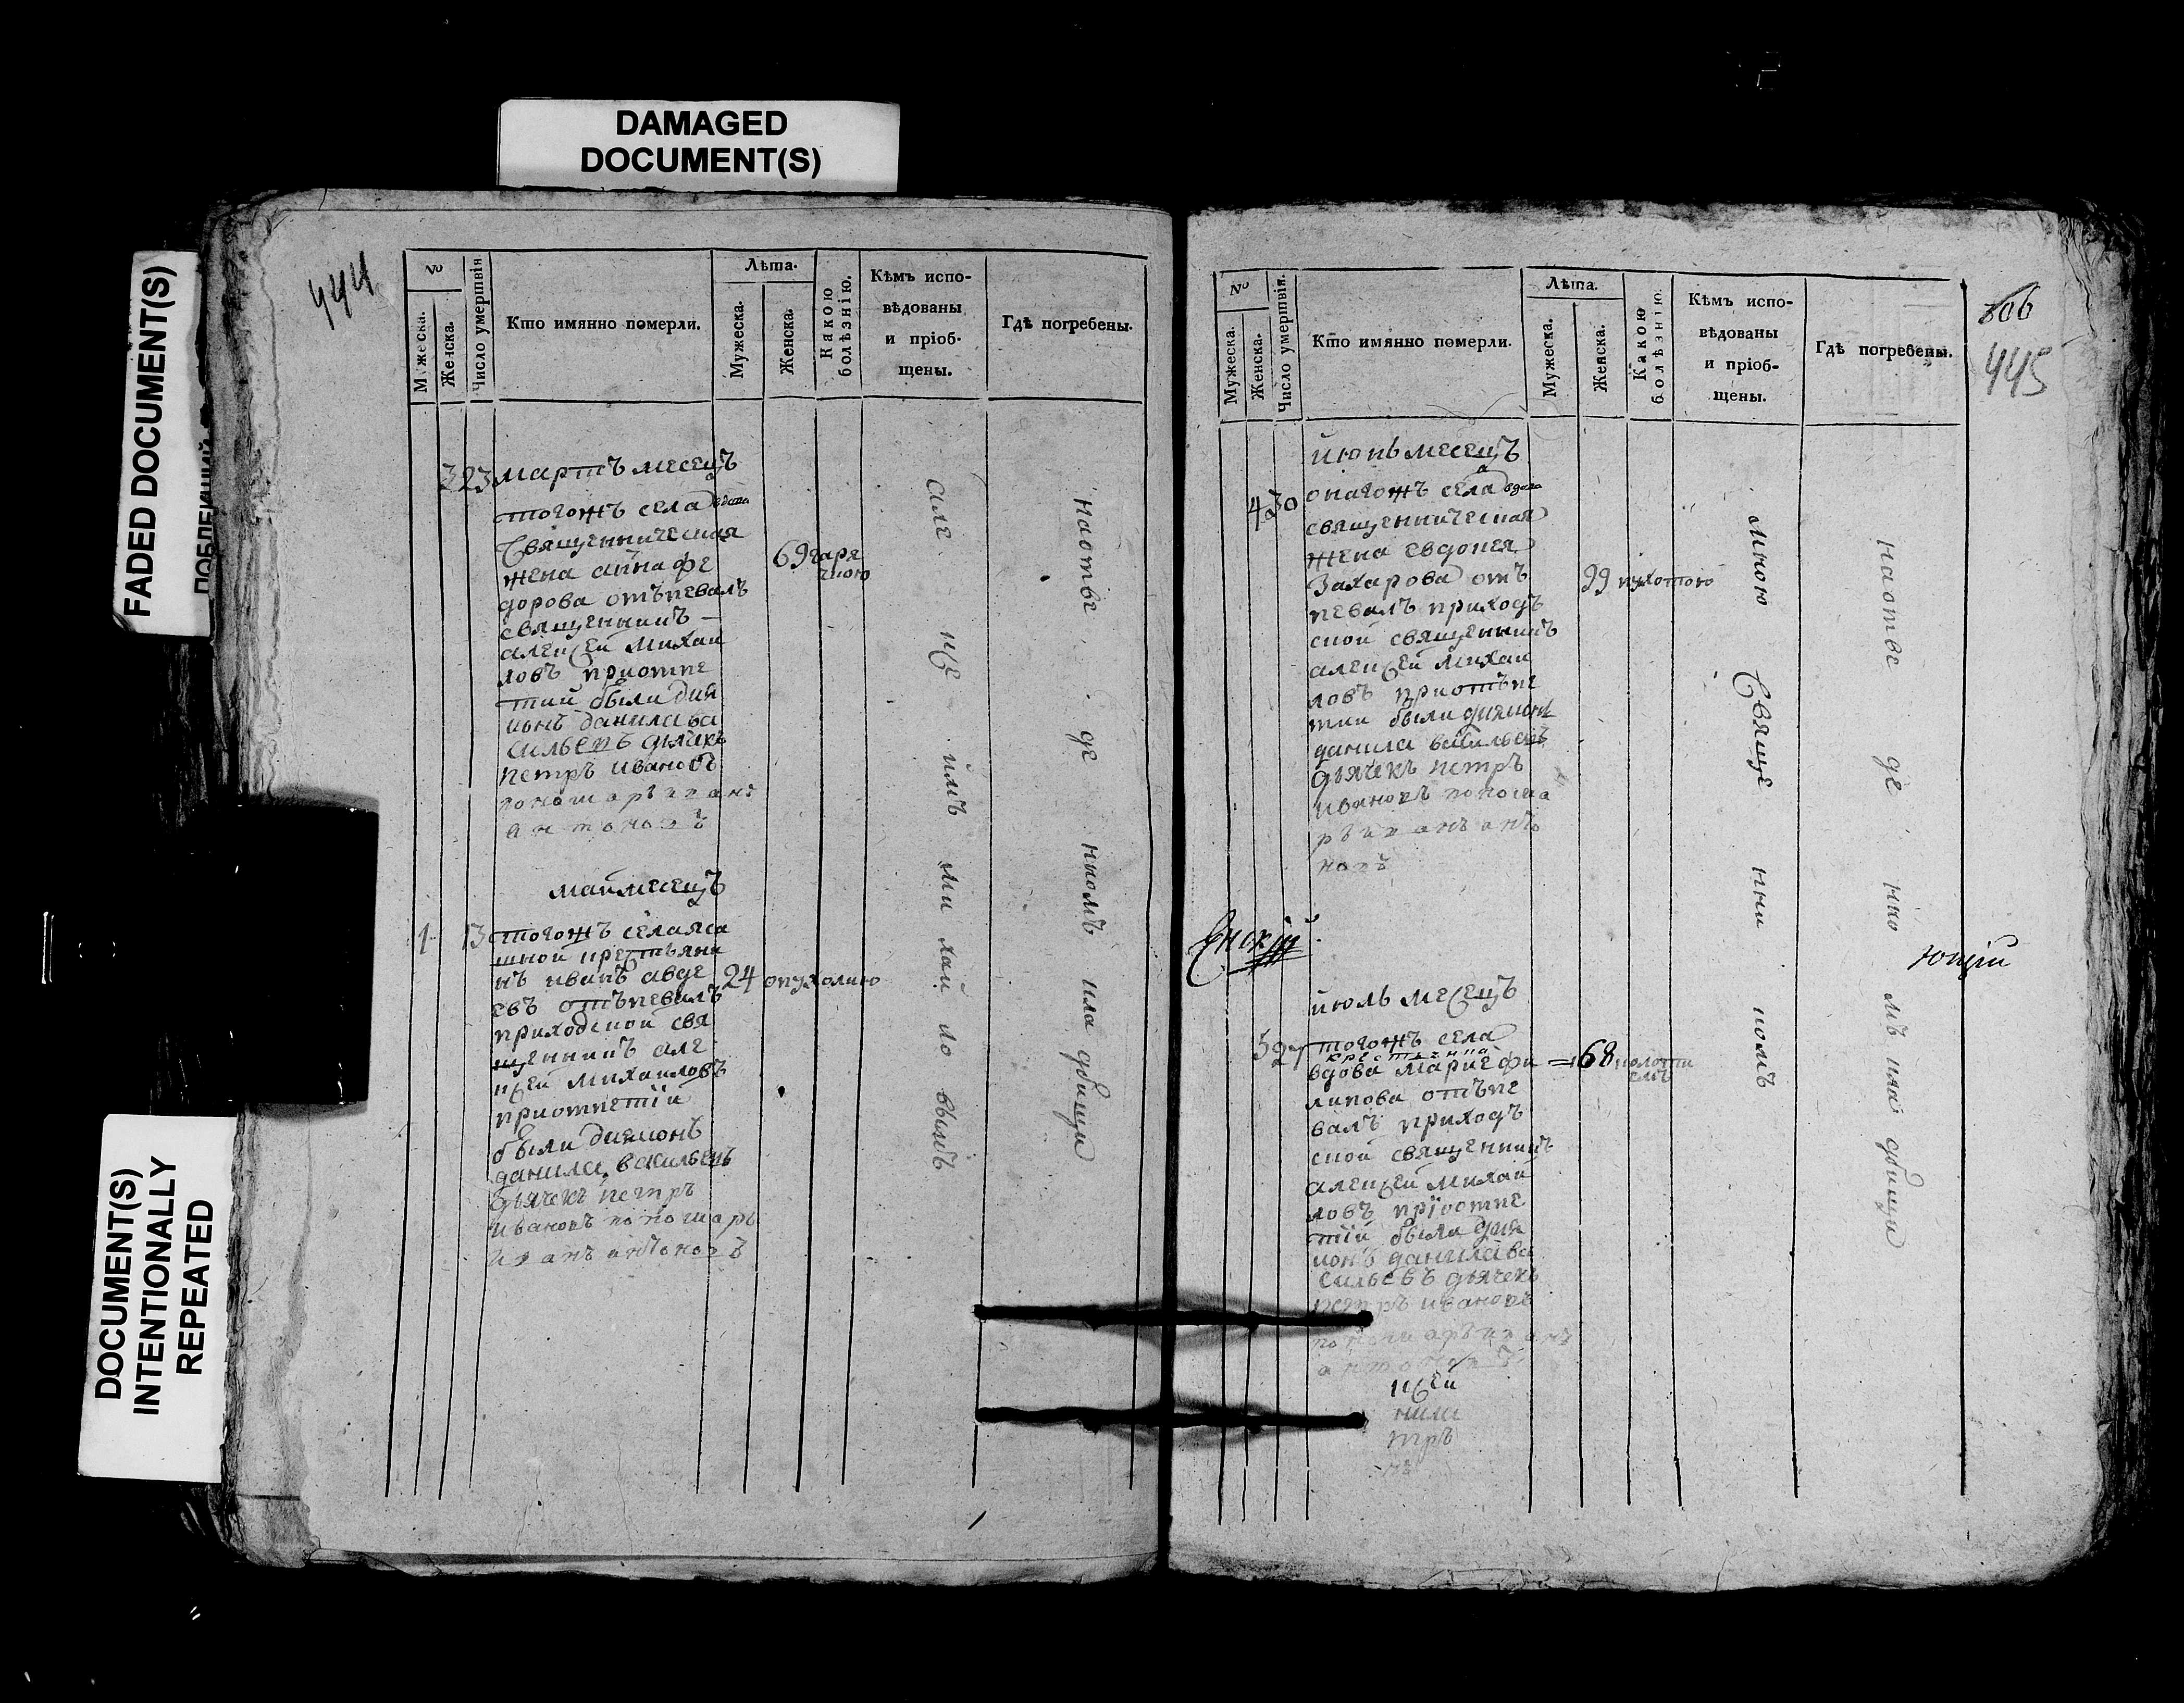 DAMAGED
DOCUMENT(S)
FADED DOCUMENT(S)
DOCUMENT(S)
INTENTIONALLY
REPEATED
444
№
Мужеска.
Женска.
Число умертвія
Кто имянно померли.
Лѣта.
Мужеска.
Женска.
Какою
болѣзнію.
Кѣмъ испо-
вѣдованы
и пріоб-
щены.
Гдѣ погребены.
3 23 мартъ месецъ
тогожъ села вдова
Священническая
жена анна фе
дорова отъпевалъ
священникъ
алексей михаи
ловъ приотпе
тии были дия
конъ данила ва
сильевъ дьячекъ
петръ ивановъ
пономарь иванъ
антоновъ
69 горя
чкою
маи месецъ
1 13 тогожъ села яса
шной крестьяни
нъ иванъ авде
евъ отъпевалъ
приходской свя
щенникъ але
ксей михаиловъ
приотпетіи
были дияконъ
данила васильевъ
дьячекъ петръ
ивановъ пономарь
иванъ антоновъ
24 опухолию
але ксе имъ ми хаи ло вымъ
наотве де нномъ кла дбищи
№
Мужеска.
Женска.
Число умертвія.
Кто имянно померли.
Лѣта.
Мужеска.
Женска.
Какою
болѣзнію.
Кѣмъ испо-
вѣдованы
и пріоб-
щены.
Гдѣ погребены.
806
445
июнь месецъ
4 30 онагожъ села вдова
священническая
жена евдокея
Захарова отъ
певалъ приход
ской священникъ
алексей михаи
ловъ приотъпе
тии были дияконъ
данила васильевъ
дьячекъ петръ
ивановъ понома
рь иванъ анто
новъ
99 пухотою
июль месецъ
5 27 тогожъ села
крестьянка
вдова марие фи
липова отъпе
валъ приход
ской священникъ
алексей михаи
ловъ пріотпе
тіи были дия
конъ данила ва
сильевъ дьячекъ
петръ ивановъ
пономарь иванъ
антоновъ
68 колоти
емъ
мною Свяще нни комъ
наотве де нно мъ кла дбищи
ксеи
нила
тръ